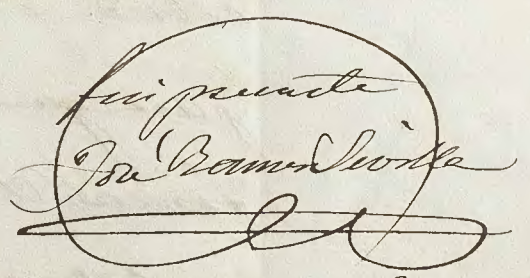 Fui presente
José Ramon Sevilla